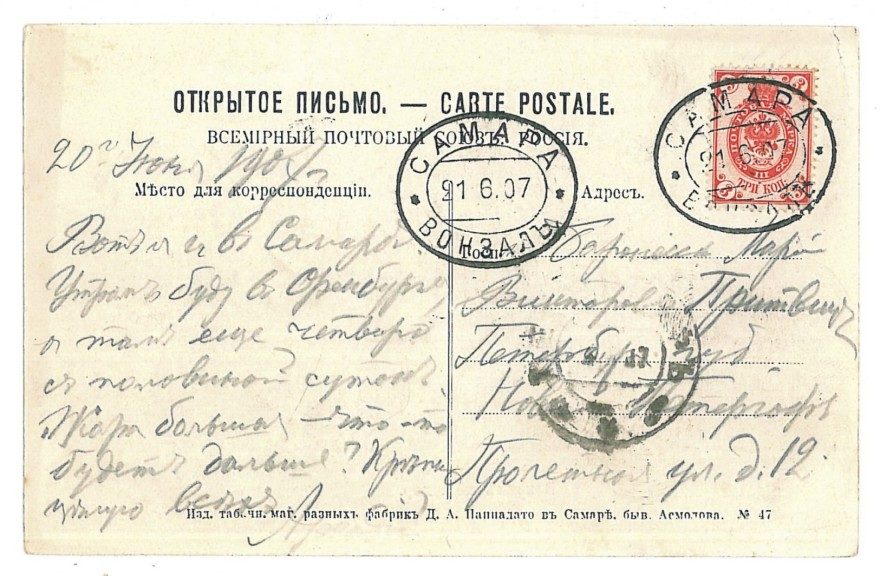 ОТКРЫТОЕ ПИСЬМО. — CARTE POSTALE.
ВСЕМІРНЫЙ ПОЧТОВЫЙ СОЮЗЪ РОССІЯ.
20го Іюня 1907
Мѣсто для корреспонденціи.
Адресъ.
САМАРА
21.6.07
ВОКЗАЛЪ
САМАРА
21.6.07
ВОКЗАЛЪ
ТРИ КОП.
Вотъ и въ Самарѣ.
Утромъ буду въ Оренбургѣ,
а тамъ еще четверо
съ половиной сутокъ.
Жара большая — что-то
будетъ дальше? Крѣпко
цѣлую всѣхъ
Баронессѣ Маріи
Викторовнѣ
Петербур. губ
Новый Петергофъ
ул. д. 12
Изд. табачн. маг. разныхъ фабрикъ Д. А. Паппадато въ Самарѣ, быв. Асмолова. № 47